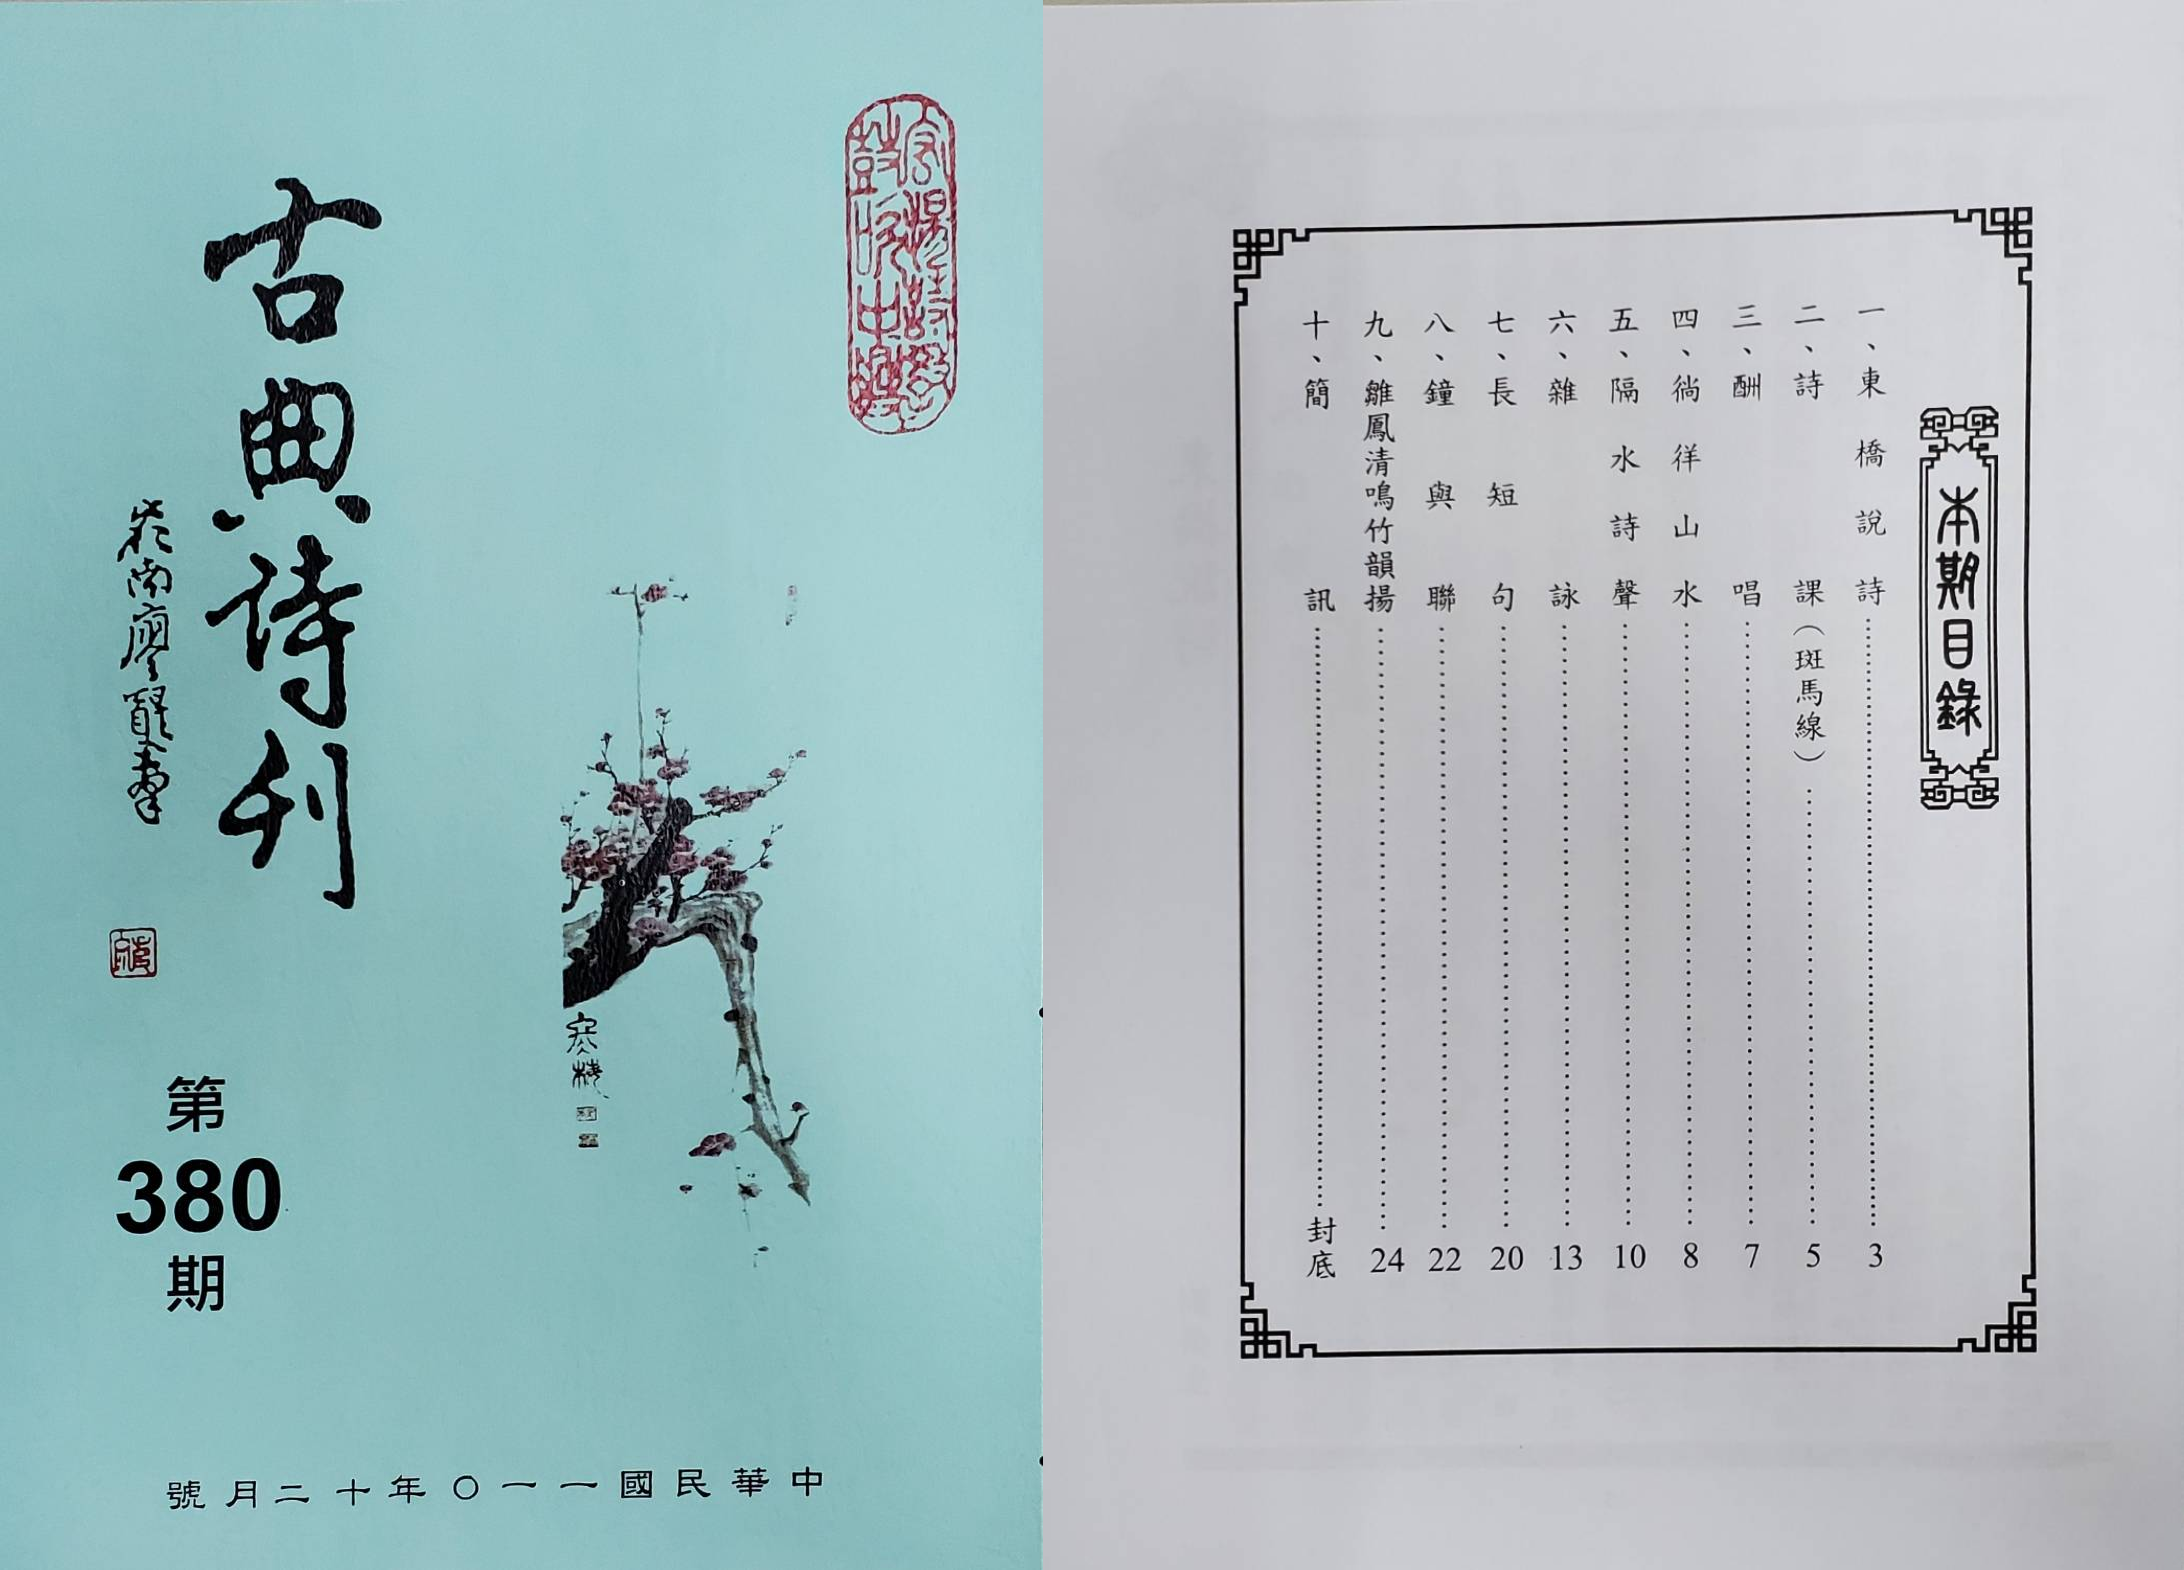 古典詩刊
第
380
期
中華民國一一〇年十二月號
寒梅
本期目錄
一、東橋說詩……3
二、詩課（斑馬線）……5
三、酬唱……7
四、徜徉山水……8
五、隔水詩聲……10
六、雜詠……13
七、長短句……20
八、鐘與聯……22
九、雛鳳清鳴竹韻揚……24
十、簡訊……封底